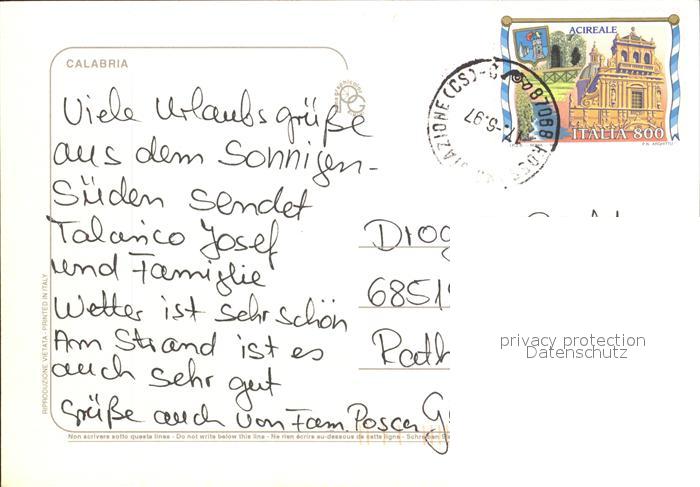 CALABRIA
ACIREALE
ITALIA 800
P.N. ARGHITTU
87068 ROSS
STAZIONE (CS)
-6.97
Viele Urlaubsgrüße
aus dem Sonnigen-
Süden sendet
Talarico Josef
und Famiglie
Wetter ist sehr schön
Am Strand ist es
auch sehr gut
Grüße auch von Fam. Posca
Diog
6851
Rath
privacy protection
Datenschutz
RIPRODUZIONE VIETATA - PRINTED IN ITALY
Non scrivere sotto questa linea - Do not write below this line - Ne rien écrire au-dessous de cette ligne - Schreiben